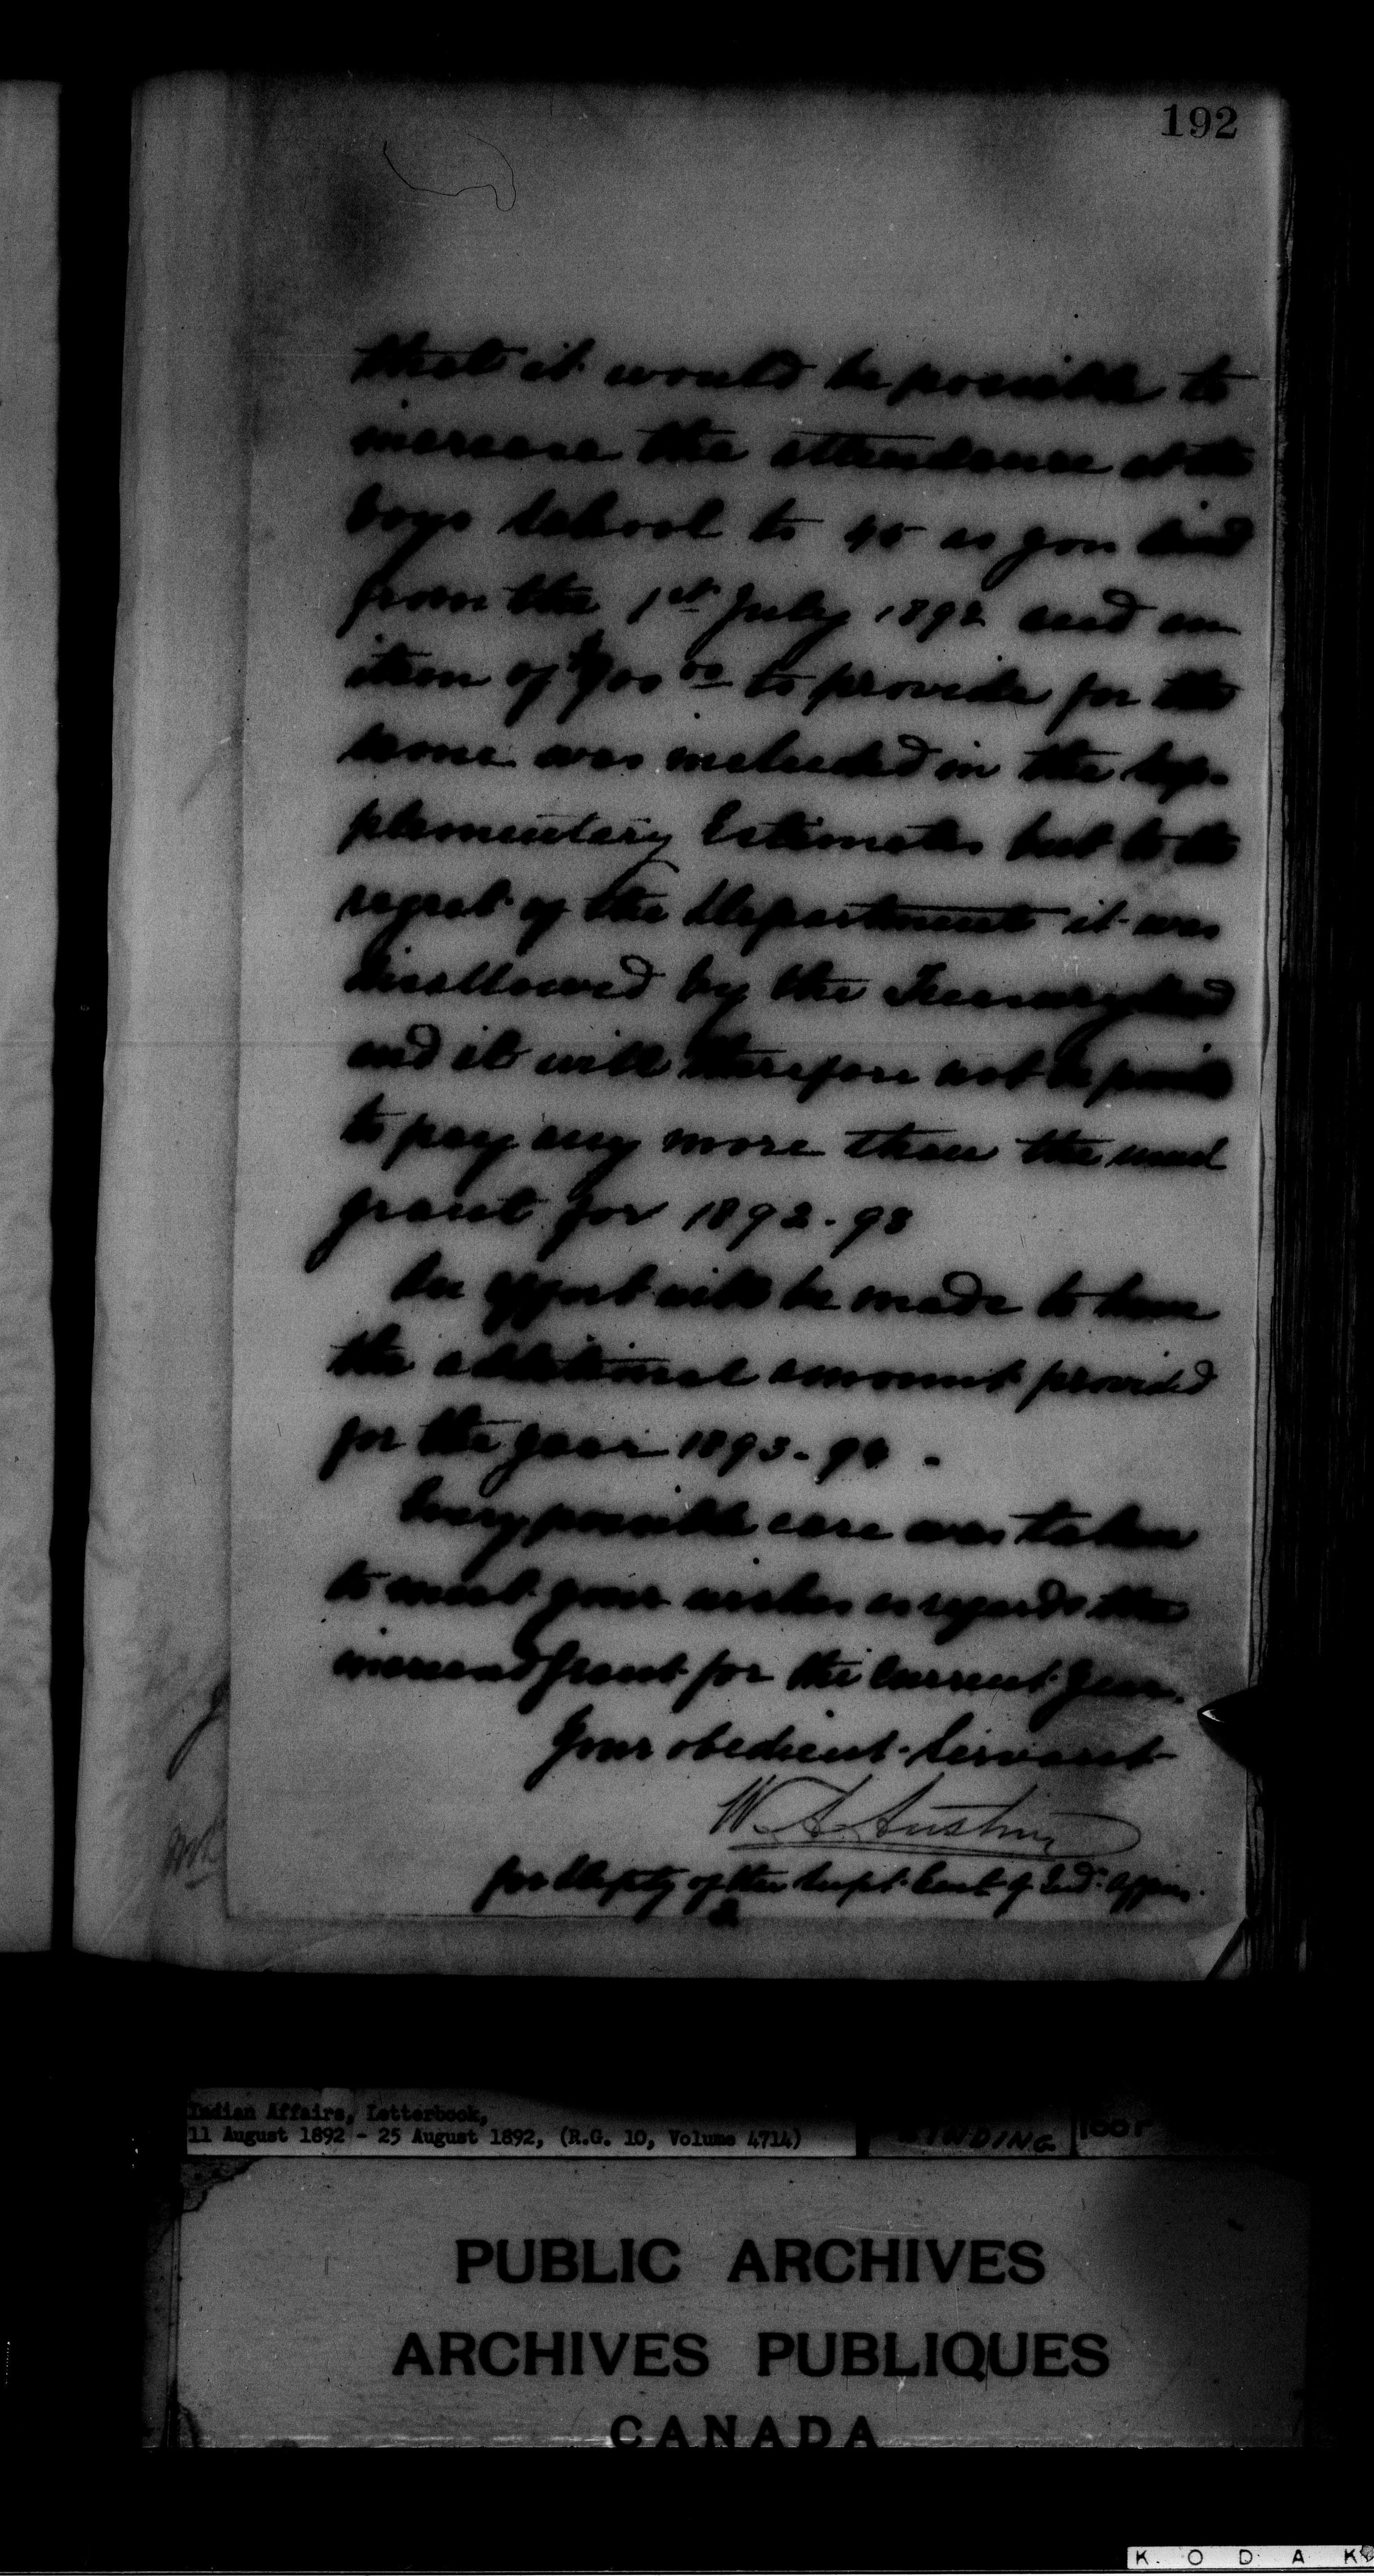 192
that it would be possible to
increase the attendance at the
boys school to 45 as you
from the 1st July 1892 and an
item of $900 00 to provide for the
same was included in the Sup-
plementary Estimates but to the
regret of the Department it was
disallowed by the Treasury Board
and it will therefore not be possible
to pay any more than the usual
grant for 1892-93
An effort will be made to have
the additional amount provided
for the year 1893-94.
Every possible care was taken
to meet your wishes as regards the
increased grant for the current year.
Your obedient Servant
W. A. Austin
for Deputy of the Supt. Genl. of Ind. Affairs.
Indian Affairs, Letterbook,
11 August 1892 - 25 August 1892, (R.G. 10, Volume 4714)
BINDING
PUBLIC ARCHIVES
ARCHIVES PUBLIQUES
CANADA
K O D A K